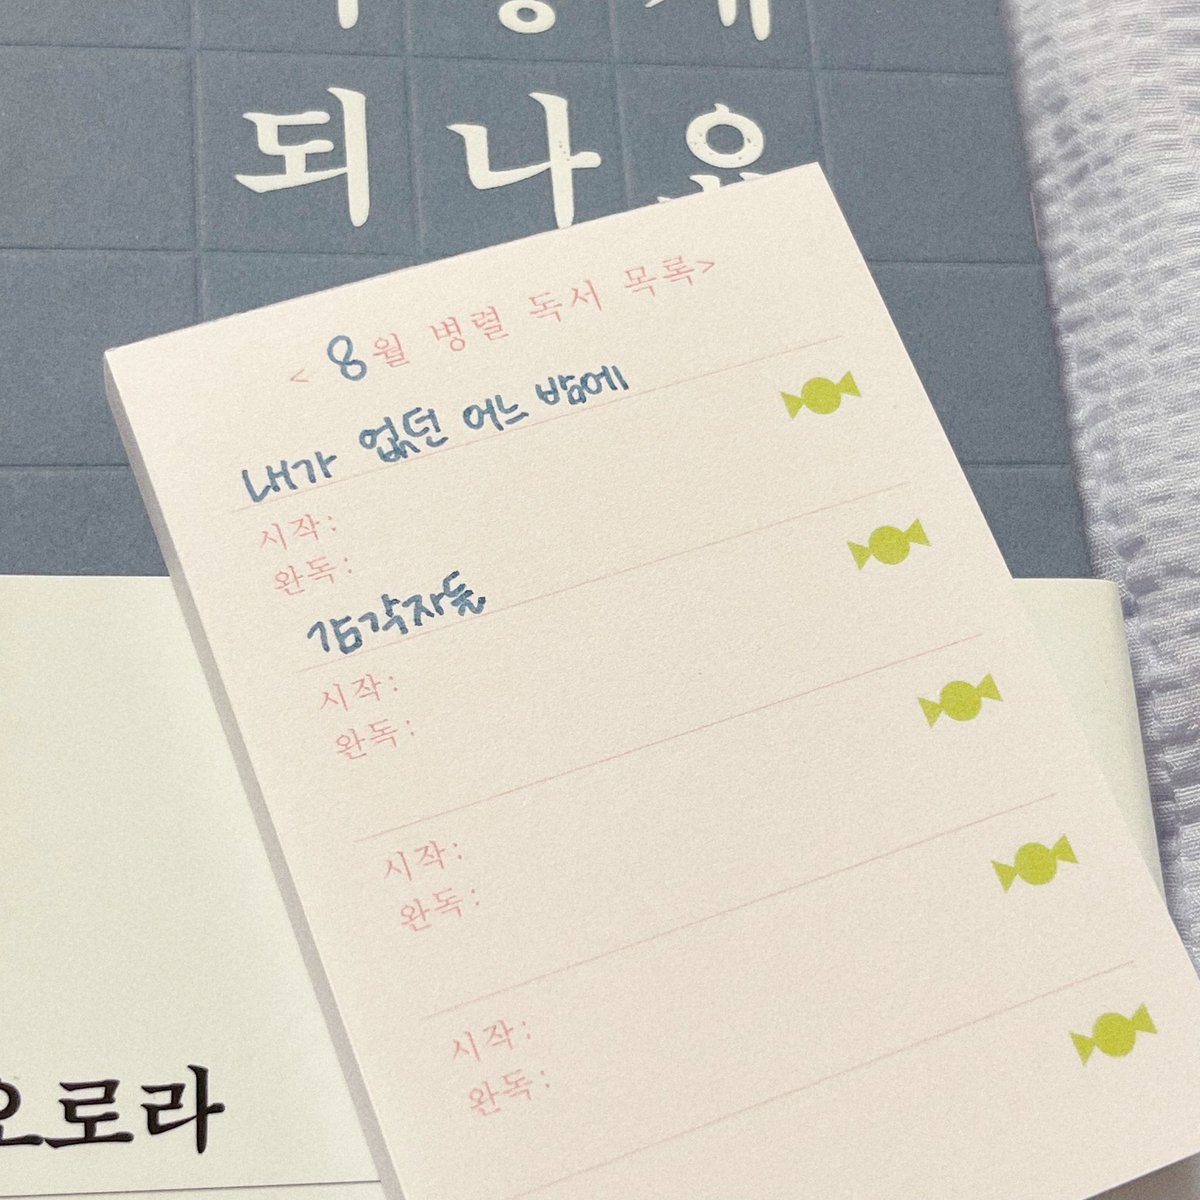 되나요
<8월 병렬 독서 목록>
내가 없던 어느 밤에
시작:
완독:
감각자들
시작:
완독:
시작:
완독:
시작:
완독:
오로라